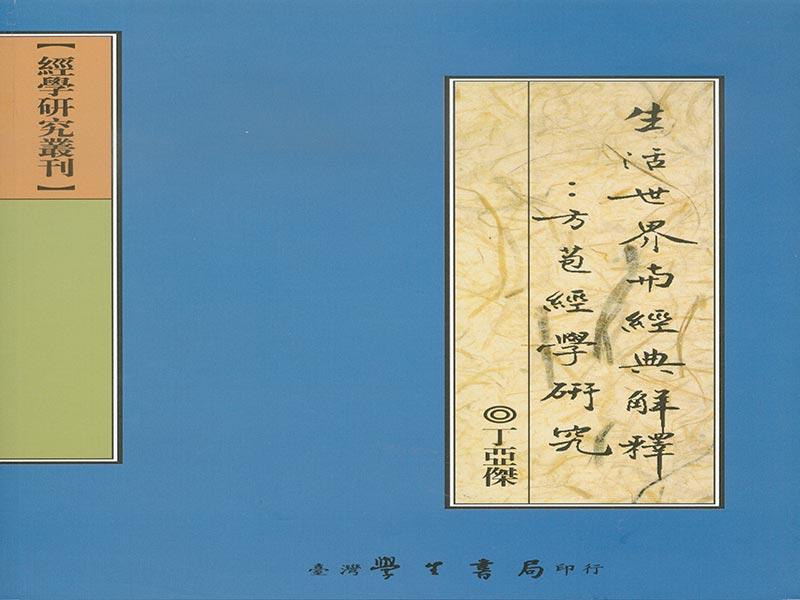 生活世界與經典解釋
：方苞經學研究
◎丁亞傑
【經學研究叢刊】
臺灣學生書局印行